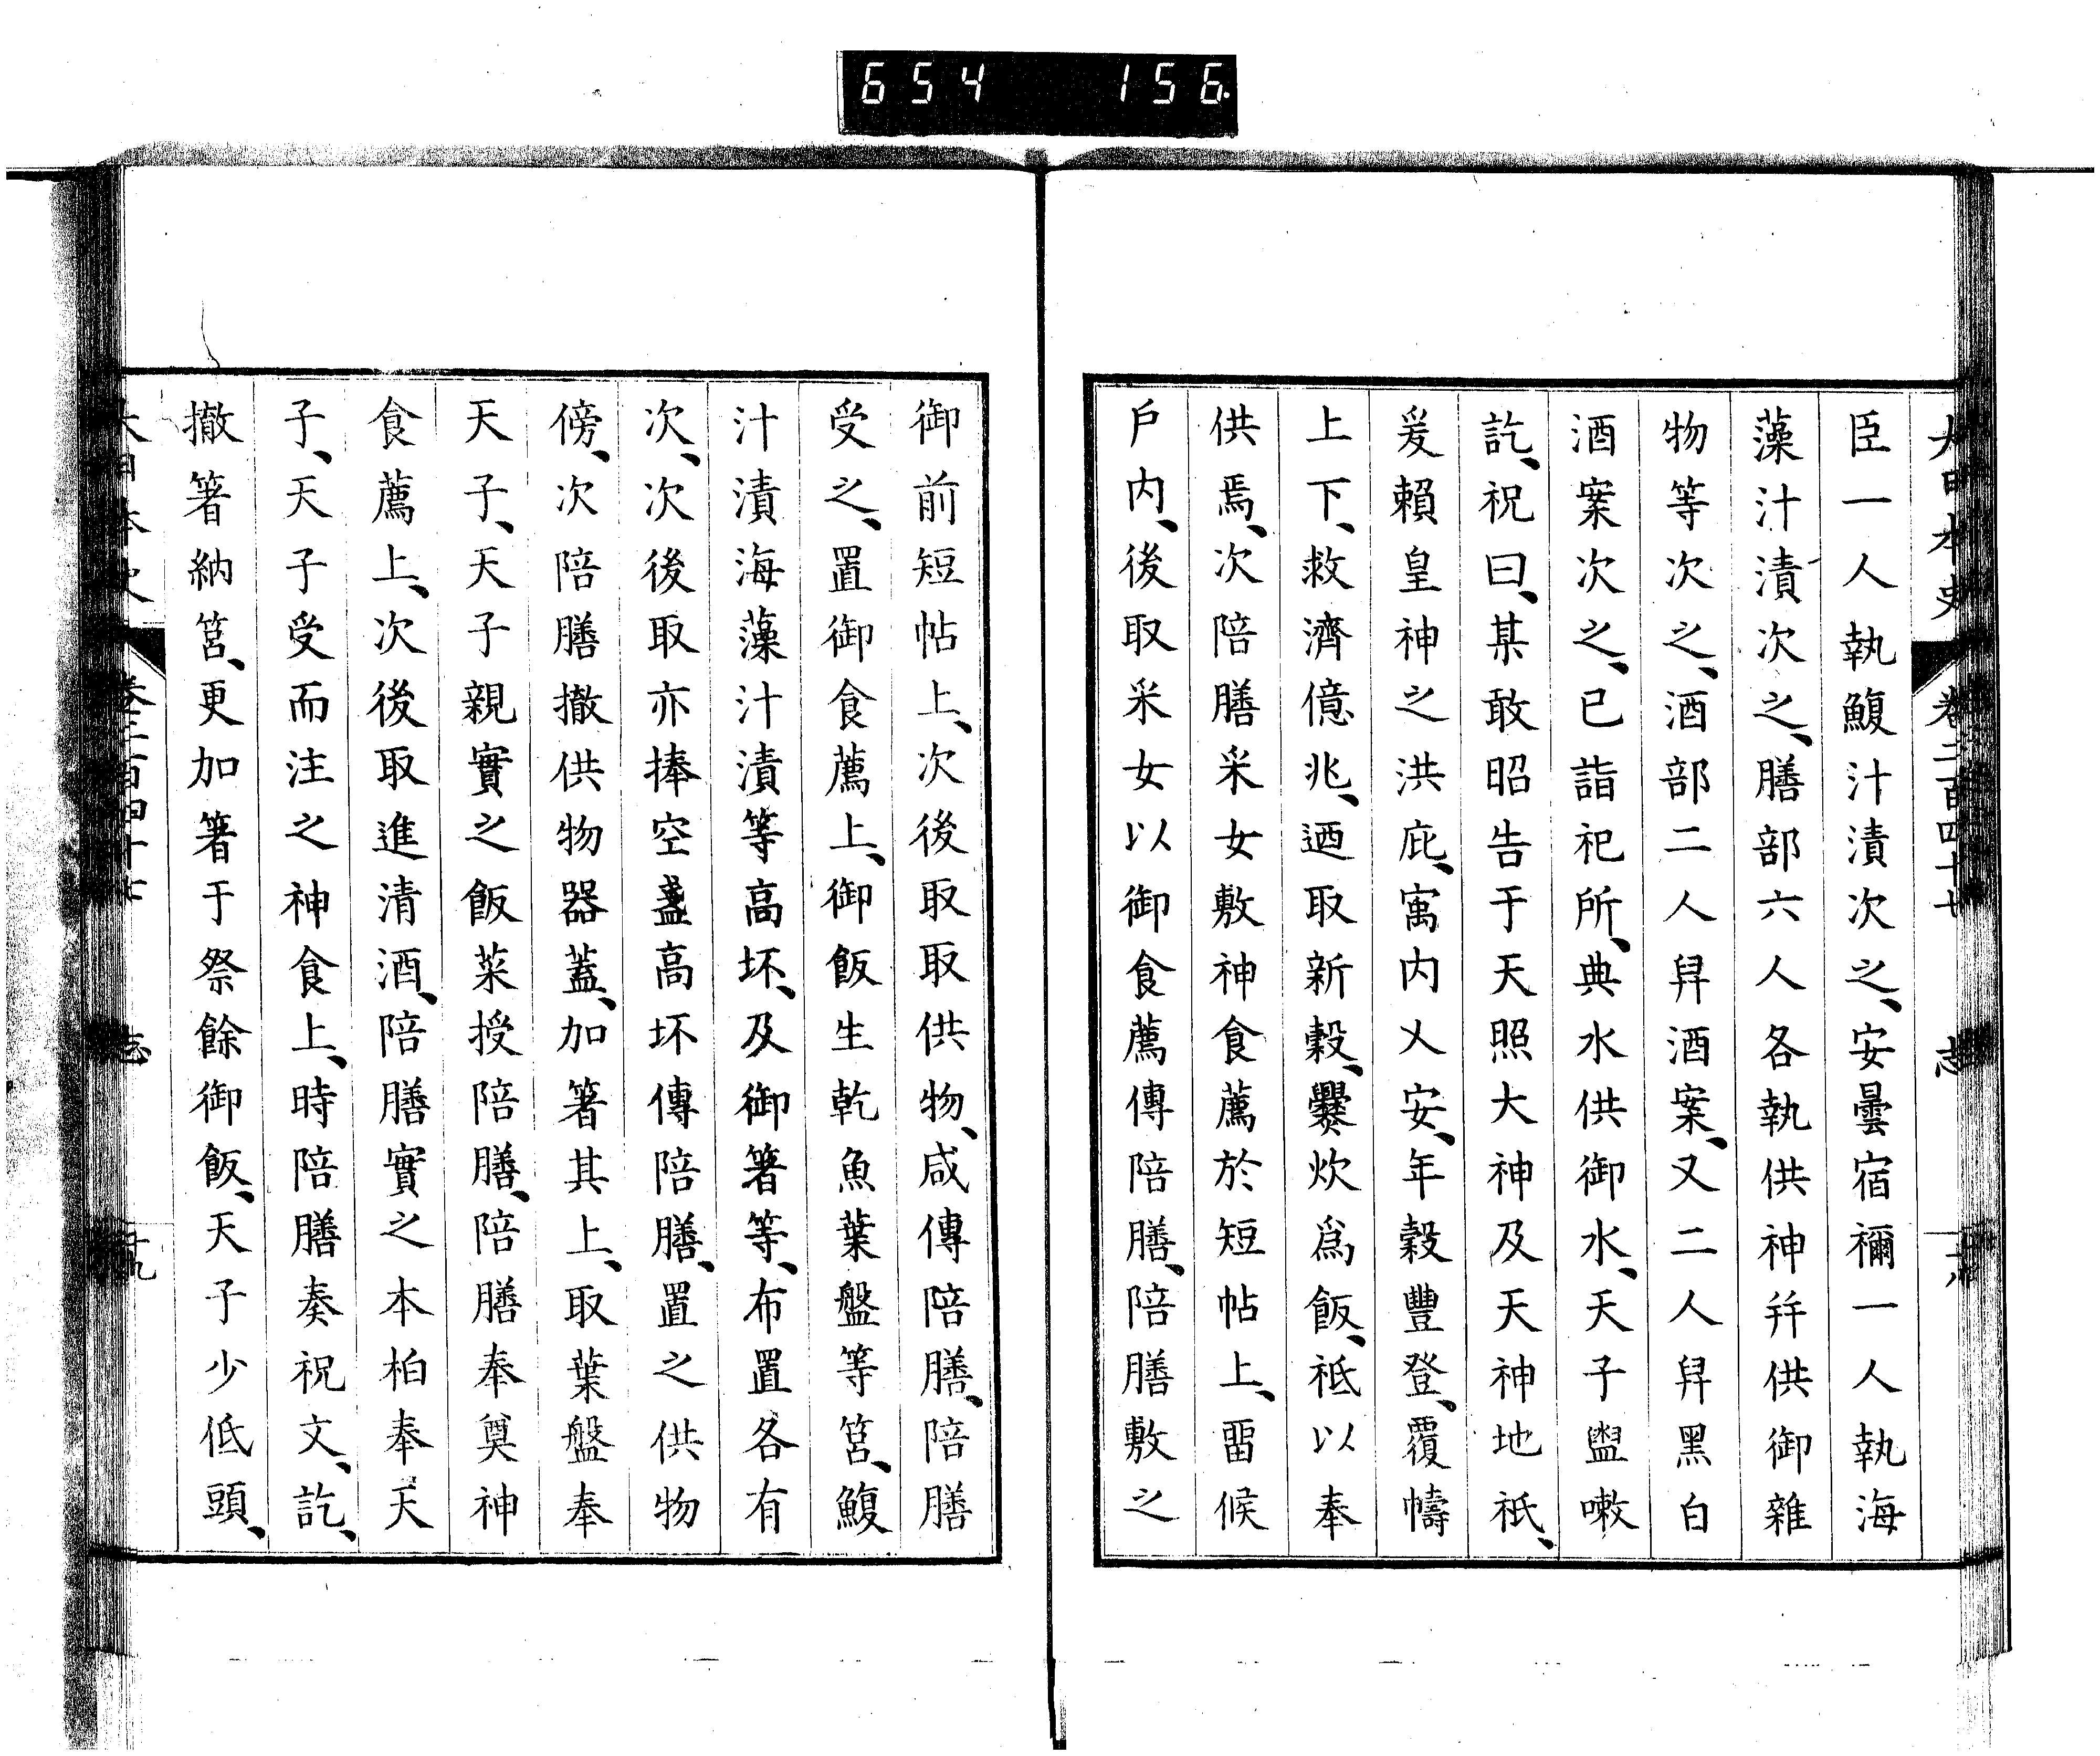 654 156
大日本史 卷二百四十七 志 十八
臣一人執鰒汁漬次之、安曇宿禰一人執海
藻汁漬次之、膳部六人各執供神幷供御雜
物等次之、酒部二人舁酒案、又二人舁黑白
酒案次之、已詣祀所、典水供御水、天子盥嗽
訖、祝曰、某敢昭告于天照大神及天神地祇、
爰賴皇神之洪庇、寓內乂安、年穀豐登、覆幬
上下、救濟億兆、迺取新穀、爨炊爲飯、祗以奉
供焉、次陪膳采女敷神食薦於短帖上、畱候
戶內、後取采女以御食薦傳陪膳、陪膳敷之
御前短帖上、次後取取供物、咸傳陪膳、陪膳
受之、置御食薦上、御飯生乾魚葉盤等筥、鰒
汁漬海藻汁漬等高坏、及御箸等、布置各有
次、次後取亦捧空盞高坏傳陪膳、置之供物
傍、次陪膳撤供物器蓋、加箸其上、取葉盤奉
天子、天子親實之飯菜授陪膳、陪膳奉奠神
食薦上、次後取進清酒、陪膳實之本柏奉天
子、天子受而注之神食上、時陪膳奏祝文、訖、
撤箸納筥、更加箸于祭餘御飯、天子少低頭、
大日本史 卷二百四十七 志 十九